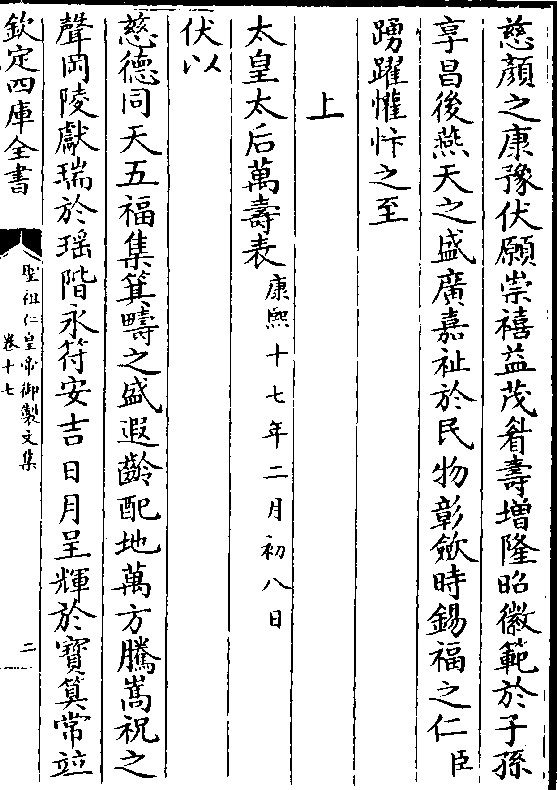 慈顔之康豫伏願崇禧益茂眉壽增隆昭徽範於子孫
享昌後燕天之盛廣嘉祉於民物彰歛時錫福之仁臣
踴躍懽忭之至
上
太皇太后萬壽表康熙十七年二月初八日
伏以
慈德同天五福集箕疇之盛遐齡配地萬方騰嵩祝之
聲岡陵獻瑞於瑶階永符安吉日月呈輝於寶算常竝
欽定四庫全書
聖祖仁皇帝御製文集
卷十七
二